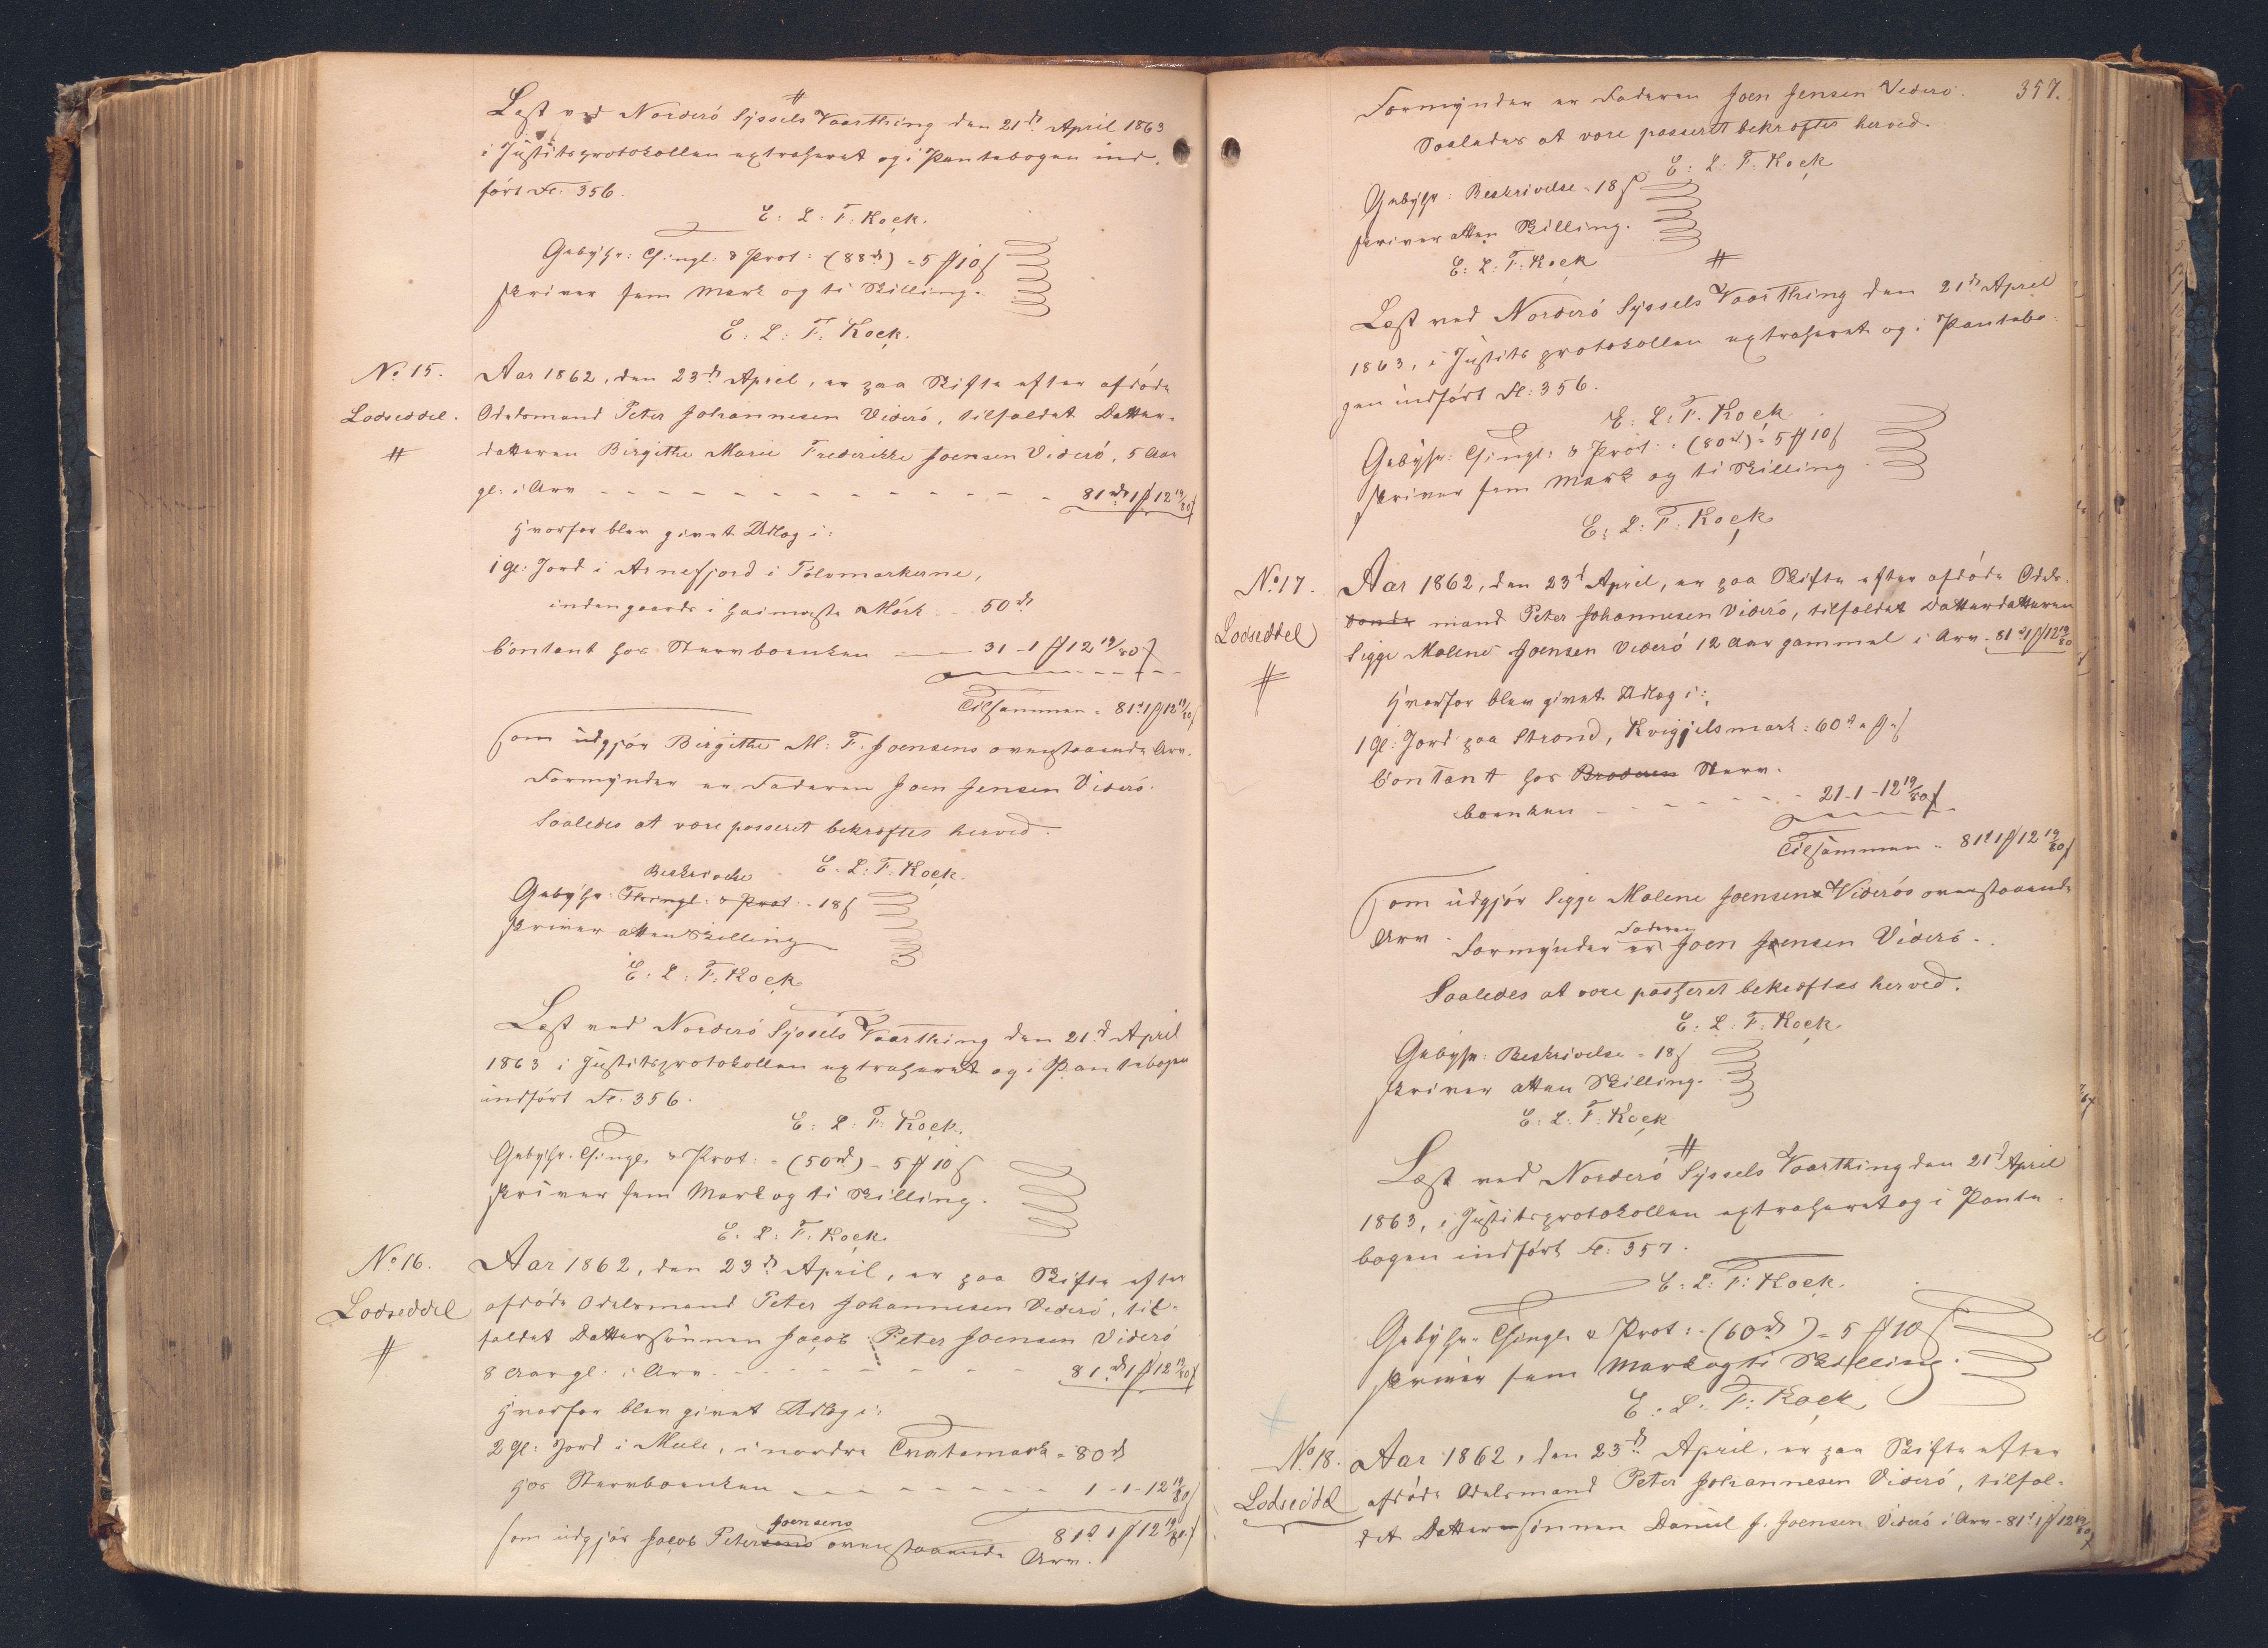 Læst ved Norderö Syssels Vaarthing den 21de April 1863
i Justitsprotokollen extraheret og i Pantebogen ind-
ført Fl. 356.
E: L: F: Kock.
Gebyhr: Thingl: & Prot: (88rd) = 5 # 10 ß
skriver fem Mark og ti Skilling.
E: L: F: Kock.
No 15.
Lodseddel.
#
Aar 1862, den 23de April, er paa Skifte efter afdøde
Odelsmand Peter Johannesen Viderö, tilfaldet Datter-
datteren Birgithe Marie Frederikke Joensen Viderö, 5 Aar
gl: i Arv - - - 81rd 1 # 12 19/80 ß
Hvorfor blev givet Udlæg i:
1 Gl: Jord i Arnefjord i Tolvmarkerne,
indengaards i Heimasta Mörk - - 50rd
Contant hos Stervboenken — 31 - 1 # 12 19/80 ß
Tilsammen = 81rd 1 # 12 19/80 ß
som udgjør Birgithe M: F. Joensens ovenstaaende Arv.
Formynder er Faderen Joen Jensen Viderö.
Saaledes at være passeret bekræftes herved.
E. L: F. Kock.
Beskrivelse
Gebyhr: Thingl: & Prot = 18 ß
skriver atten Skilling
E: L: F: Kock
Læst ved Norderö Syssels Vaarthing den 21de April
1863 i Justitsprotokollen extraheret og i Pantebogen
indført Fl. 356.
E: L: F: Kock.
Gebyhr. Thingl. & Prot: = (50rd) = 5 # 10 ß
skriver fem Mark og ti Skilling.
E. L: F. Kock.
No 16.
Lodseddel
#
Aar 1862, den 23de April, er paa Skifte efter
afdøde Odelsmand Peter Johannesen Viderö, til-
faldet Dattersønnen Jacob Peter Joensen Viderö
8 Aar gl: i Arv - - - 81rd 1 # 12 19/80 ß
Hvorfor blev givet Udlæg i:
2 Gl: Jord i Mule, i nordre = 80rd
hos Stervboenken - - - 1 - 1 - 12 19/80 ß
81rd 1 # 12 19/80 ß
Joensens
som udgjør Jacob Petersens ovenstaaende Arv.
357.
Formynder er Faderen Joen Jensen Viderö.
Saaledes at være passeret bekræftes herved.
E: L: F: Kock
Gebyhr: Beskrivelse = 18 ß
skriver atten Skilling.
E: L: F: Kock
#
Læst ved Norderö Syssels Vaarthing den 21de April
1863, i Justitsprotokollen extraheret og i Pantebo-
gen indført Fl: 356.
E. L: F. Kock
Gebyhr: Thingl: & Prot: = (80rd) = 5 # 10 ß
skriver fem Mark og ti Skilling
E: L: F: Kock
No 17.
Lodseddel
#
Aar 1862, den 23de April, er paa Skifte efter afdøde Odels-
bonde mand Peter Johannesen Viderö, tilfaldet Datterdatteren
Sigge Malene Joensen Viderö 12 Aar gammel i Arv - 81rd 1 # 12 19/80
Hvorfor blev givet Udlæg i:
1 Gl: Jord paa Strond, Kvigjelsmark: 60rd " # " ß
Contant hos Broderen Sterv-
boenken - - - 21 - 1 - 12 19/80 ß
Tilsammen = 81rd 1 # 12 19/80 ß
som udgjør Sigge Malene Joensens Viderös ovenstaaende
Arv.
Faderen
Formynder er Joen Jensen Viderö.
Saaledes at være passeret bekræftes herved.
E: L: F: Kock.
Gebyhr: Beskrivelse = 18 ß
skriver atten Skilling.
E: L: F: Kock
#
Læst ved Norderö Syssels Vaarthing den 21de April
1863, i Justitsprotokollen extraheret og i Pante-
bogen indført Fl: 357.
E: L: F: Kock.
Gebyhr. Thingl: & Prot: = (60rd) = 5 # 10 ß
skriver fem Mark og ti Skilling.
E: L: F: Kock
No 18.
Lodseddel
Aar 1862, den 23de April, er paa Skifte efter
afdøde Odelsmand Peter Johannesen Viderö, tilfal-
det Dattersønnen Daniel J. Joensen Viderö i Arv = 81rd 1 # 12 19/80 ß